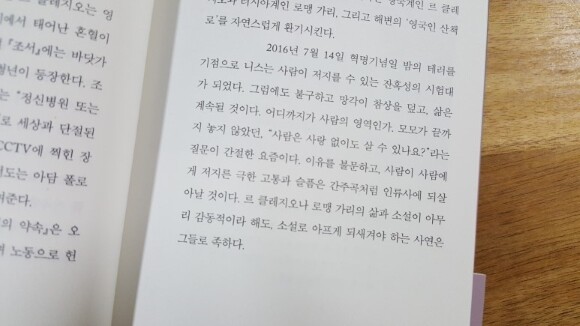 르 클레지오는 영
에서 태어난 혼혈이
『조서』에는 바닷가
청년이 등장한다. 조
는 "정신병원 또는
로 세상과 단절된
CCTV에 찍힌 장
서도는 아담 폴로
여준다.
의 약속』은 오
며 노동으로 헌
영국계인 르 클레
지오와 러시아계인 로맹 가리, 그리고 해변의 '영국인 산책
로'를 자연스럽게 환기시킨다.
2016년 7월 14일 혁명기념일 밤의 테러를
기점으로 니스는 사람이 저지를 수 있는 잔혹성의 시험대
가 되었다. 그럼에도 불구하고 망각이 참상을 덮고, 삶은
계속된 것이다. 어디까지가 사람의 영역인가. 모모가 끝까
지 놓지 않았던, "사람은 사랑 없이도 살 수 있나요?"라는
질문이 간절한 요즘이다. 이유를 불문하고, 사람이 사람에
게 저지른 극한 고통과 슬픔은 간주곡처럼 인류사에 되살
아날 것이다. 르 클레지오나 로맹 가리의 삶과 소설이 아무
리 감동적이라 해도, 소설로 아프게 되새겨야 하는 사연은
그들로 족하다.